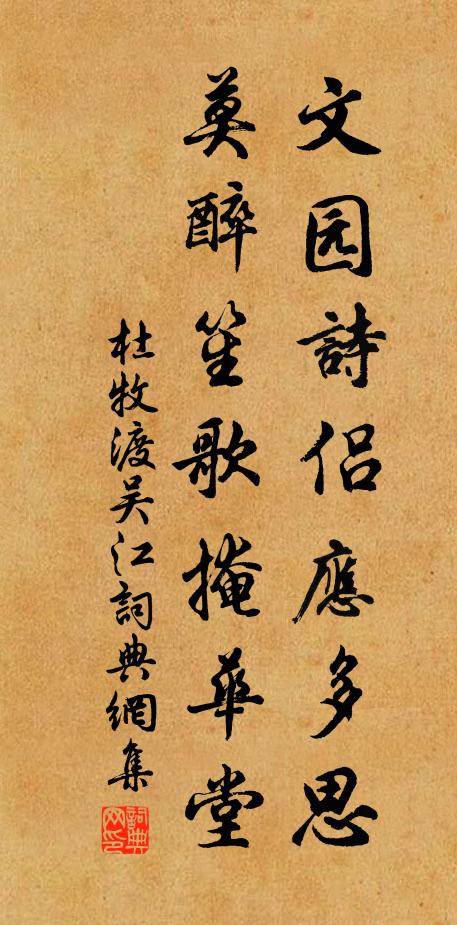 文园詩侣應多思
莫醉笙歌掩華堂
杜牧渡吴江詞典網集
詞典
网印